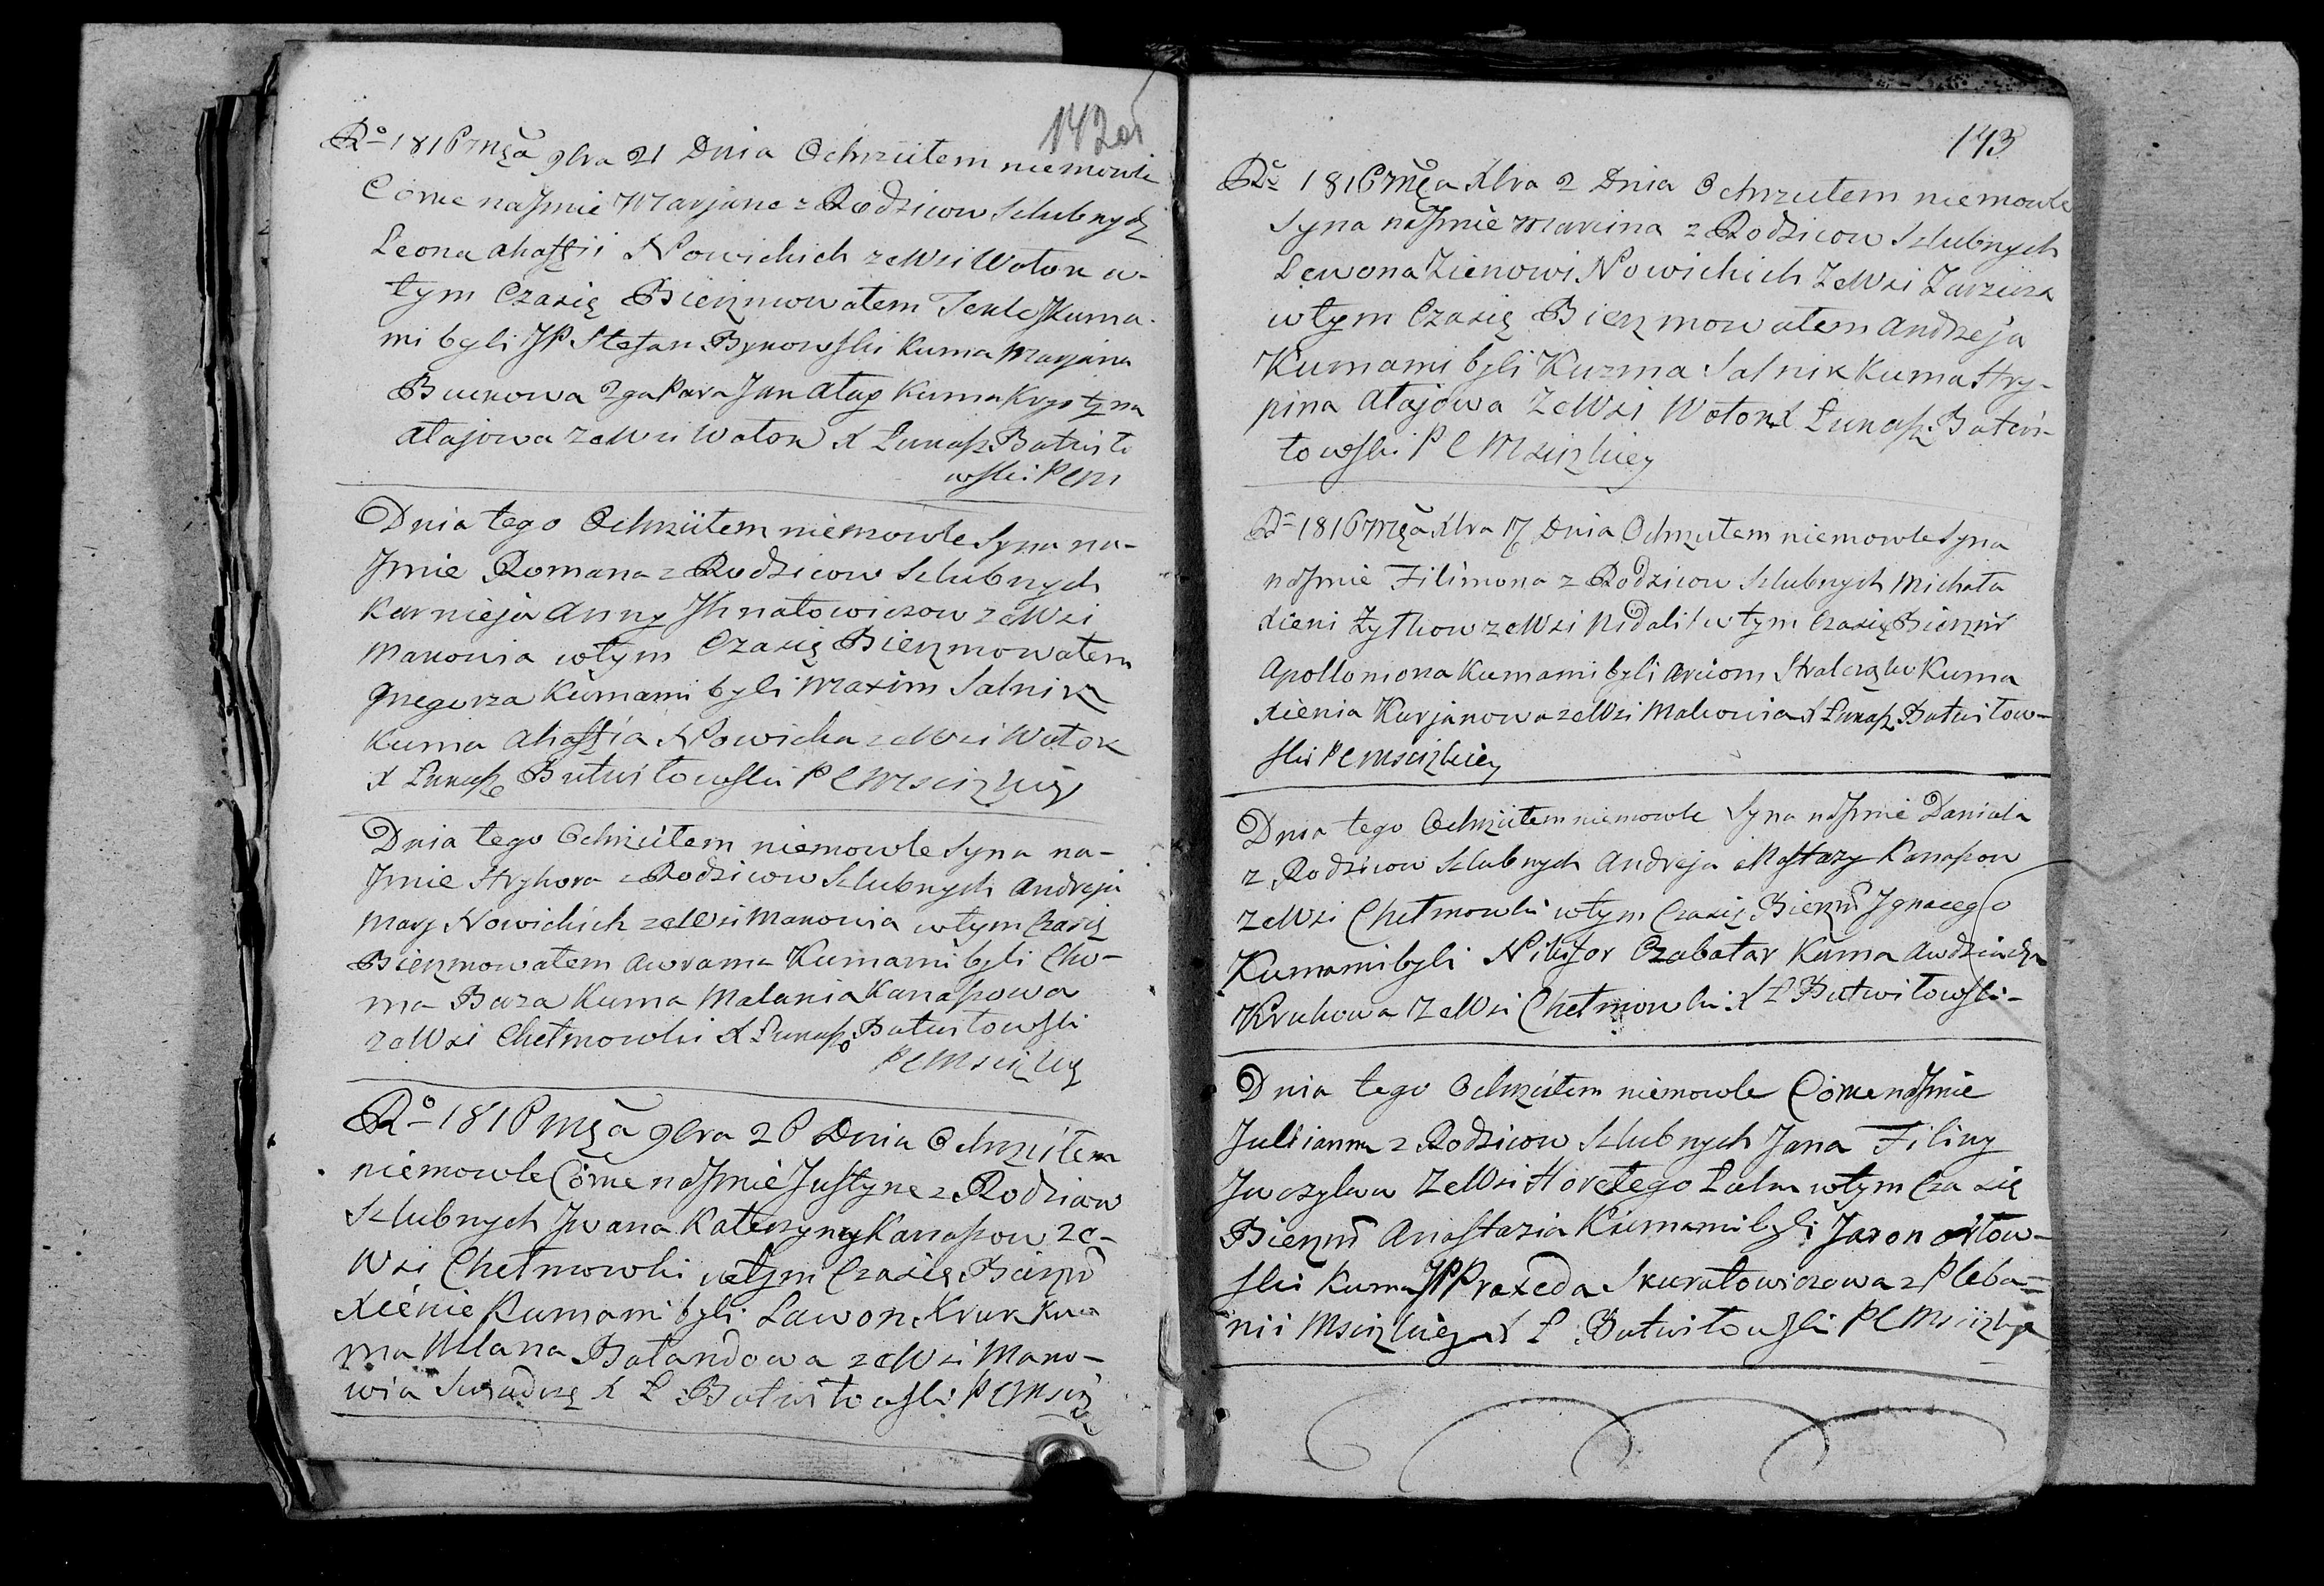 142об
Rº 1816 mca 9bra 21 Dnia Ochrzciłem niemowle
Córke na Jmie Marjane z Rodzicow Szlubnych
Leona Ahafii Nowickich ze Wsi Wołok w-
tym Czasię Bierzmowałem Tekle Kuma-
mi byli JP Stefan Bykowski Kuma Marjana
Buczkowa 2ga Para Jan Ałay Kuma Krystyna
Ałajowa ze Wsi Wołok X Łukasz Butwiło
wski PCM
Dnia tego Ochrzciłem niemowle Syna na-
Jmie Romana z Rodzicow Szlubnych
Karnieja Anny Jhnatowiczow ze Wsi
Makowia w tym Czasię Bierzmowałem
Grzegorza Kumami byli Maxim Salnik
Kuma Ahafia Nowicka ze Wsi Wołok
X Łukasz Butwiłowski PCMscizkiey
Dnia tego Ochrzciłem niemowle Syna na-
Jmie Hryhora z Rodzicow Szlubnych Andreja
Mary Nowickich ze Wsi Makowia w tym Czasię
Bierzmowałem Awrama Kumami byli Cho-
ma Kuma Małania Kanaszowa
ze Wsi Chełmowki X Łukasz Butwiłowski
PCMscizkiey
Rº 1816 mca 9bra 26 Dnia Ochrzciłem
niemowle Córke na Jmie Justyne z Rodzicow
Szlubnych Jwana Katerzyny Kanaszow ze-
Wsi Chełmowki w tym Czasię Bierzm
Xienie Kumami byli Lawon Kruk Ku
ma Ulana Bałandowa ze Wsi Mako-
wia Swiadczę X Ł Butwiłowski PCMsciz
143
Rº 1816 mca Xbra 2 Dnia Ochrzciłem niemowle
Syna na Jmie Marcina z Rodzicow Szlubnych
Lewona Zienowi Nowickich Ze Wsi Zarzecza
w tym Czasię Bierzmowałem Andrzeja
Kumami byli Kuzma Salnik Kuma Hry-
pina Ałajowa Ze Wsi Wołok X Łukasz Butwi-
łowski PCMscizkiey
Rº 1816 mca Xbra 17 Dnia Ochrzciłem niemowle Syna
na Jmie Filimona z Rodzicow Szlubnych Michała
Xieni Żytkow ze Wsi Nidali w tym Czasię Bierzm
Apolloniona Kumami byli Arciom Kuma
Xienia Kurjanowa ze Wsi Makowia X Łukasz Butwiłow-
ski PCMscizkiey
Dnia tego Ochrzciłem niemowle Syna na Jmie Daniela
z Rodzicow Szlubnych Andreja Nastazy Kanaszow
ze Wsi Chełmowki w tym Czasię Bierzm Jgnacego
Kumami byli Nikifor Czabatar Kuma Awdziuchа
Krukowa Ze Wsi Chełmowki X Ł Butwiłowski-
Dnia tego Ochrzciłem niemowle Córke na Jmie
Julianna z Rodzicow Szlubnych Jana Filiny
Jwczylow Ze Wsi Horełego w tym Czasię
Bierzm Anastazia Kumami byli Jazon Orłow-
ski Kuma JP Praxeda Skuratowiczowa z Pleba-
nii Mscizkiey X Ł Butwiłowski PCMscizkiey